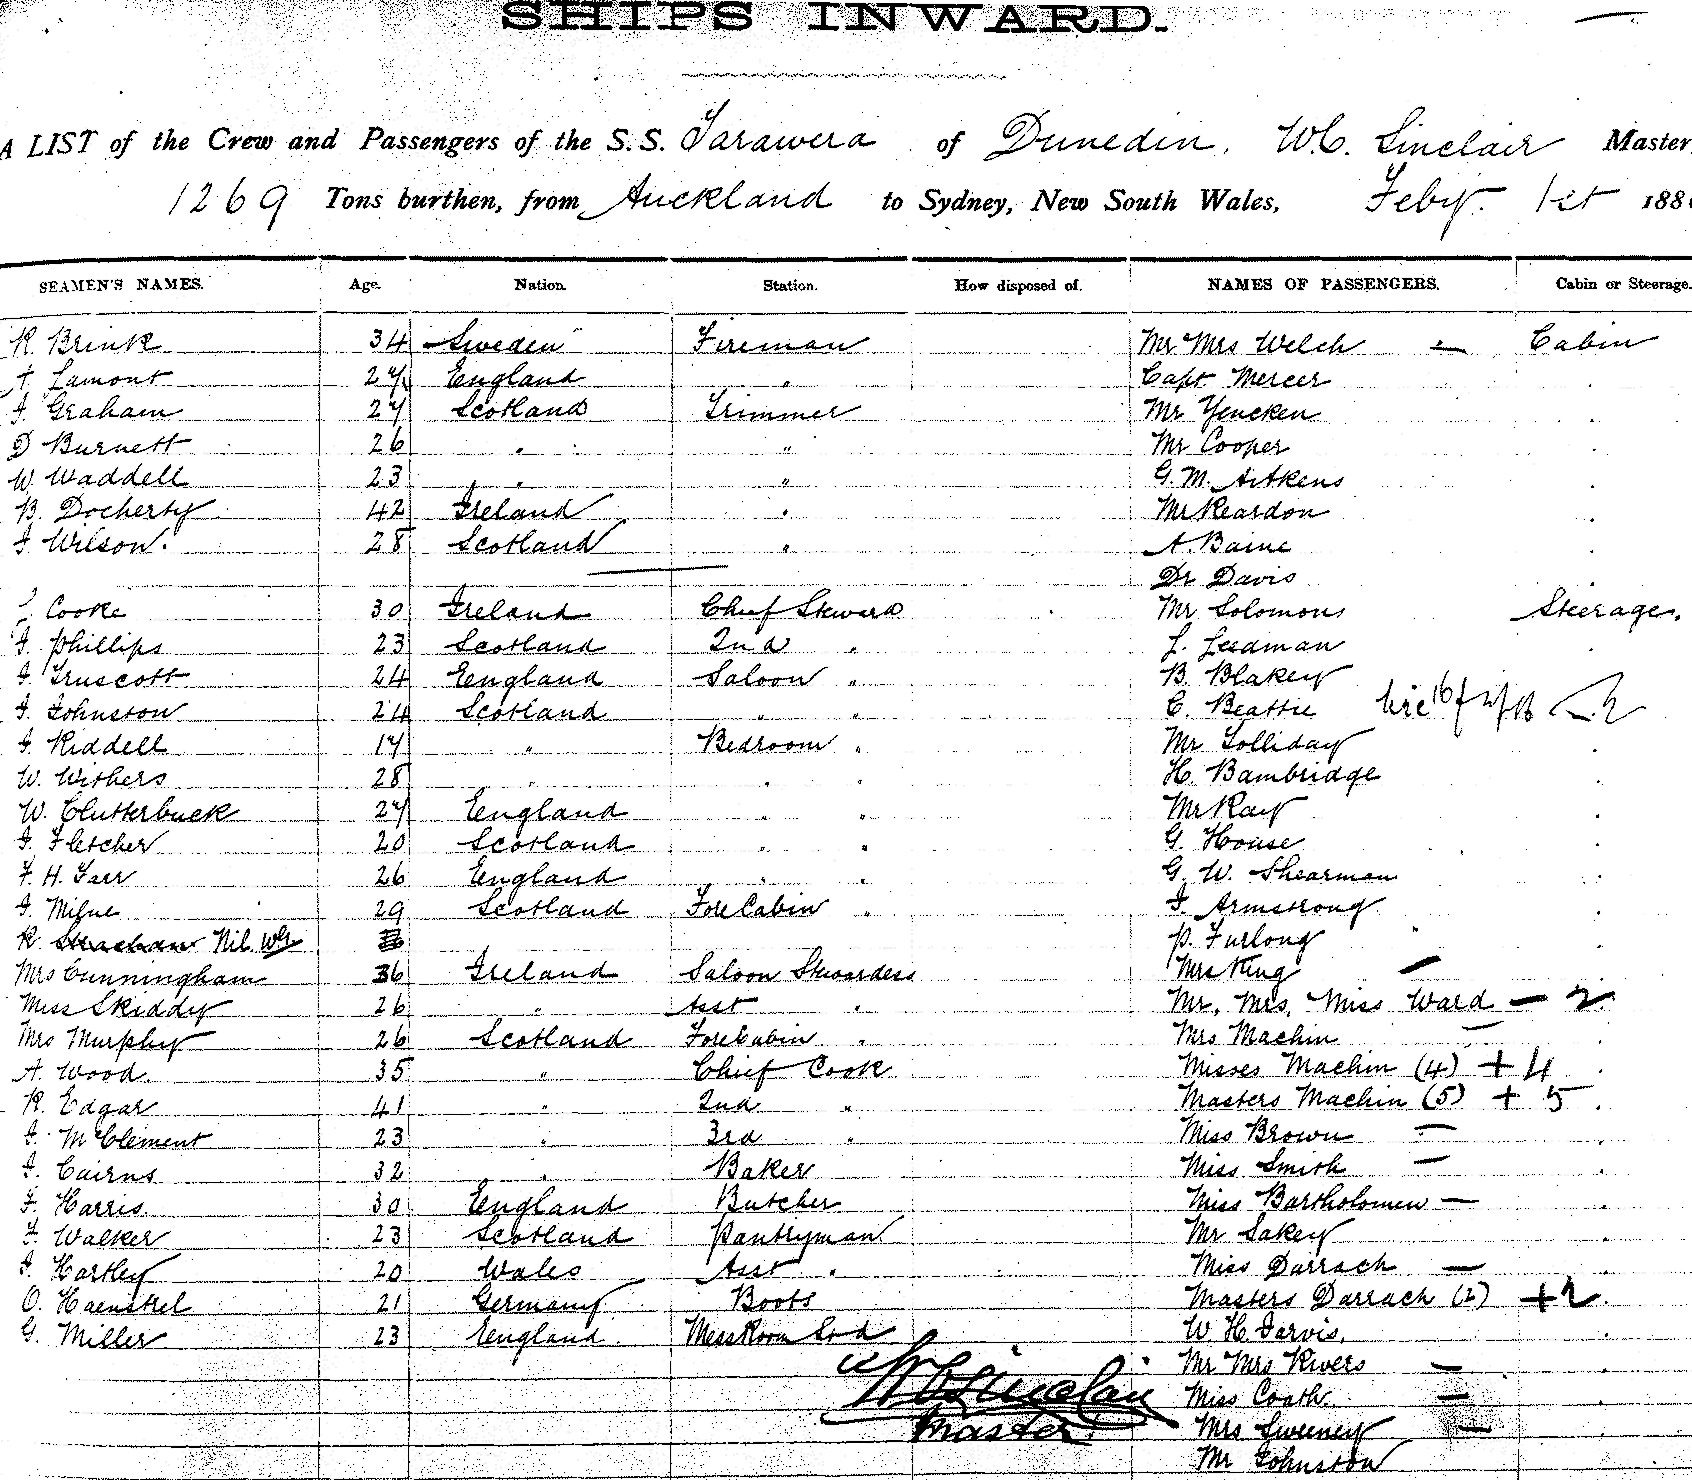 SHIPS INWARD.
A LIST of the Crew and Passengers of the S.S. Tarawera of Dunedin, W.C. Sinclair Master,
1269 Tons burthen, from Auckland to Sydney, New South Wales, Feby. 1st 188
SEAMEN'S NAMES. Age. Nation. Station. How disposed of. NAMES OF PASSENGERS. Cabin or Steerage.
R. Brink 34 Sweden Fireman Mr Mrs Welch — Cabin
Lamont 27 England " Capt Mercer
J. Graham 27 Scotland Trimmer Mr Yencken
D Burnett 26 " " Mr Cooper
W. Waddell 23 " " G. M. Aitkens
B. Docherty 42 Ireland " Mr Reardon
J. Wilson. 28 Scotland " A. Baine
Dr Davis
Cooke 30 Ireland Chief Steward Mr Solomons Steerage.
J. Phillips 23 Scotland 2nd " L. Leedman
J. Truscott 24 England Saloon " B. Blakey
J. Johnston 24 Scotland " " C. Beattie
J. Riddell 17 " Bedroom " Mr Lolliday
W. Withers 28 " " " H. Bambridge
W. Clutterbuck 27 England " " Mr Ray
J. Fletcher 20 Scotland " " G. House
F. H. Farr 26 England " " G. W. Shearman
J. Milne 29 Scotland ForeCabin " J. Armstrong
R. Strachan Nil P. Furlong
Mrs Cunningham 36 Ireland Saloon Stewardess Mrs King —
Miss Skiddy 26 " Asst " Mr, Mrs, Miss Ward — 2
Mrs Murphy 26 Scotland ForeCabin " Mrs Machin —
A. Wood. 35 " Chief Cook Misses Machin (4) + 4
R. Edgar 41 " 2nd " Masters Machin (5) + 5
J. McClement 23 " 3rd " Miss Brown —
J. Cairns 32 " Baker Miss Smith —
F. Harris 30 England Butcher Miss Bartholomew —
F. Walker 23 Scotland Pantryman Mr Sakey
J. Hartley 20 Wales Asst " Miss Darrach —
O. Haenskel 21 Germany Boots Masters Darrach (2) +2
G. Miller 23 England MessRoom Std W. H. Jarvis,
Mr Mrs Rivers —
WC Sinclair Miss Coath —
Master Mrs Sweeney —
Mr Johnston